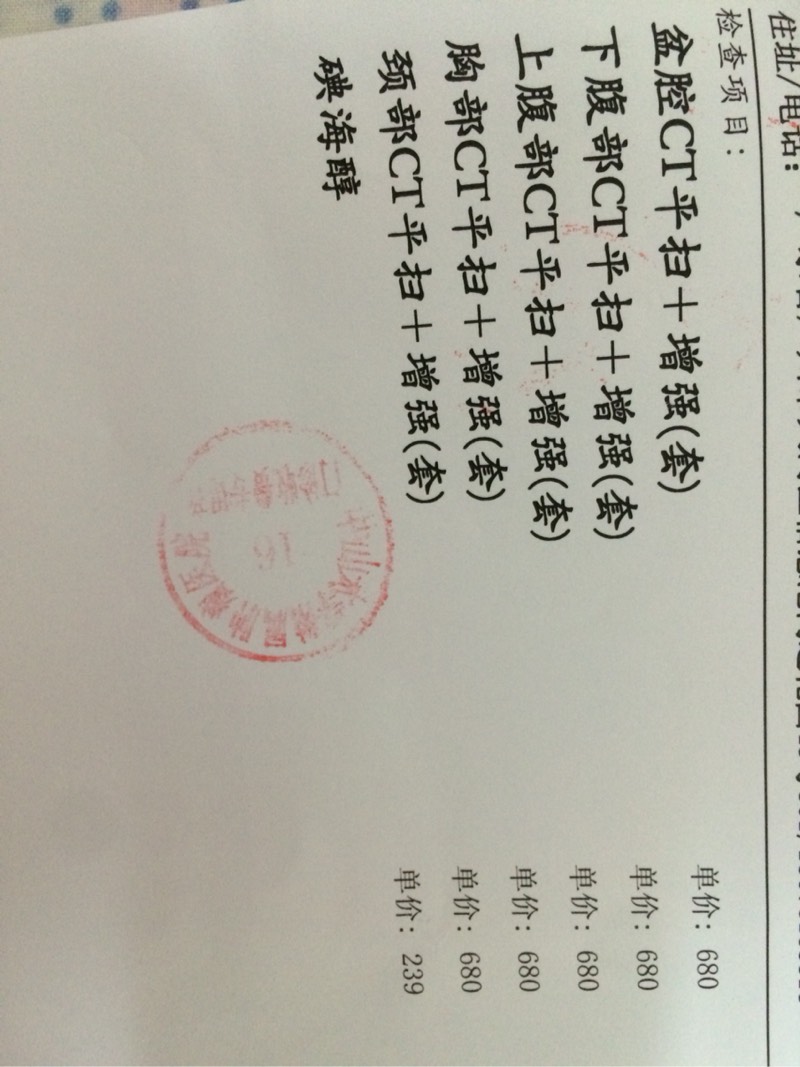 住址/电话：
检查项目：
盆腔CT平扫＋增强(套) 单价：680
下腹部CT平扫＋增强(套) 单价：680
上腹部CT平扫＋增强(套) 单价：680
胸部CT平扫＋增强(套) 单价：680
颈部CT平扫＋增强(套) 单价：680
碘海醇 单价：239
中山大学附属肿瘤医院
16